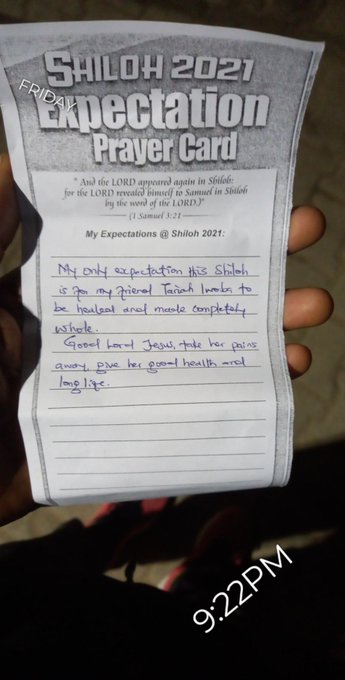 SHILOH 2021
FRIDAY
Expectation
Prayer Card
" And the LORD appeared again in Shiloh:
for the LORD revealed himself to Samuel in Shiloh
by the word of the LORD.)"
(1 Samuel 3:21
My Expectations @ Shiloh 2021:
My only expectation this Shiloh
is for my friend Tariah to
be healed and made completely
whole.
Good Lord Jesus, take her pains
away, give her good health and
long life.
9:22PM